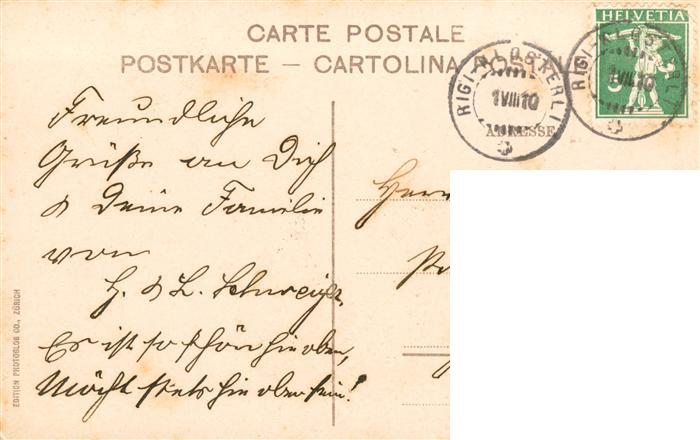 CARTE POSTALE
POSTKARTE — CARTOLINA POSTALE
HELVETIA
5
RIGI-KLÖSTERLI
1 VIII 10
RIGI-KLÖSTERLI
1 VIII 10
ADRESSE
Freundliche
Grüße an Dich
& Deine Familie
von
H. & L.
Es ist so schön hie oben,
Möcht stets hie oben sein!
Herrn
EDITION PHOTOGLOB CO., ZÜRICH